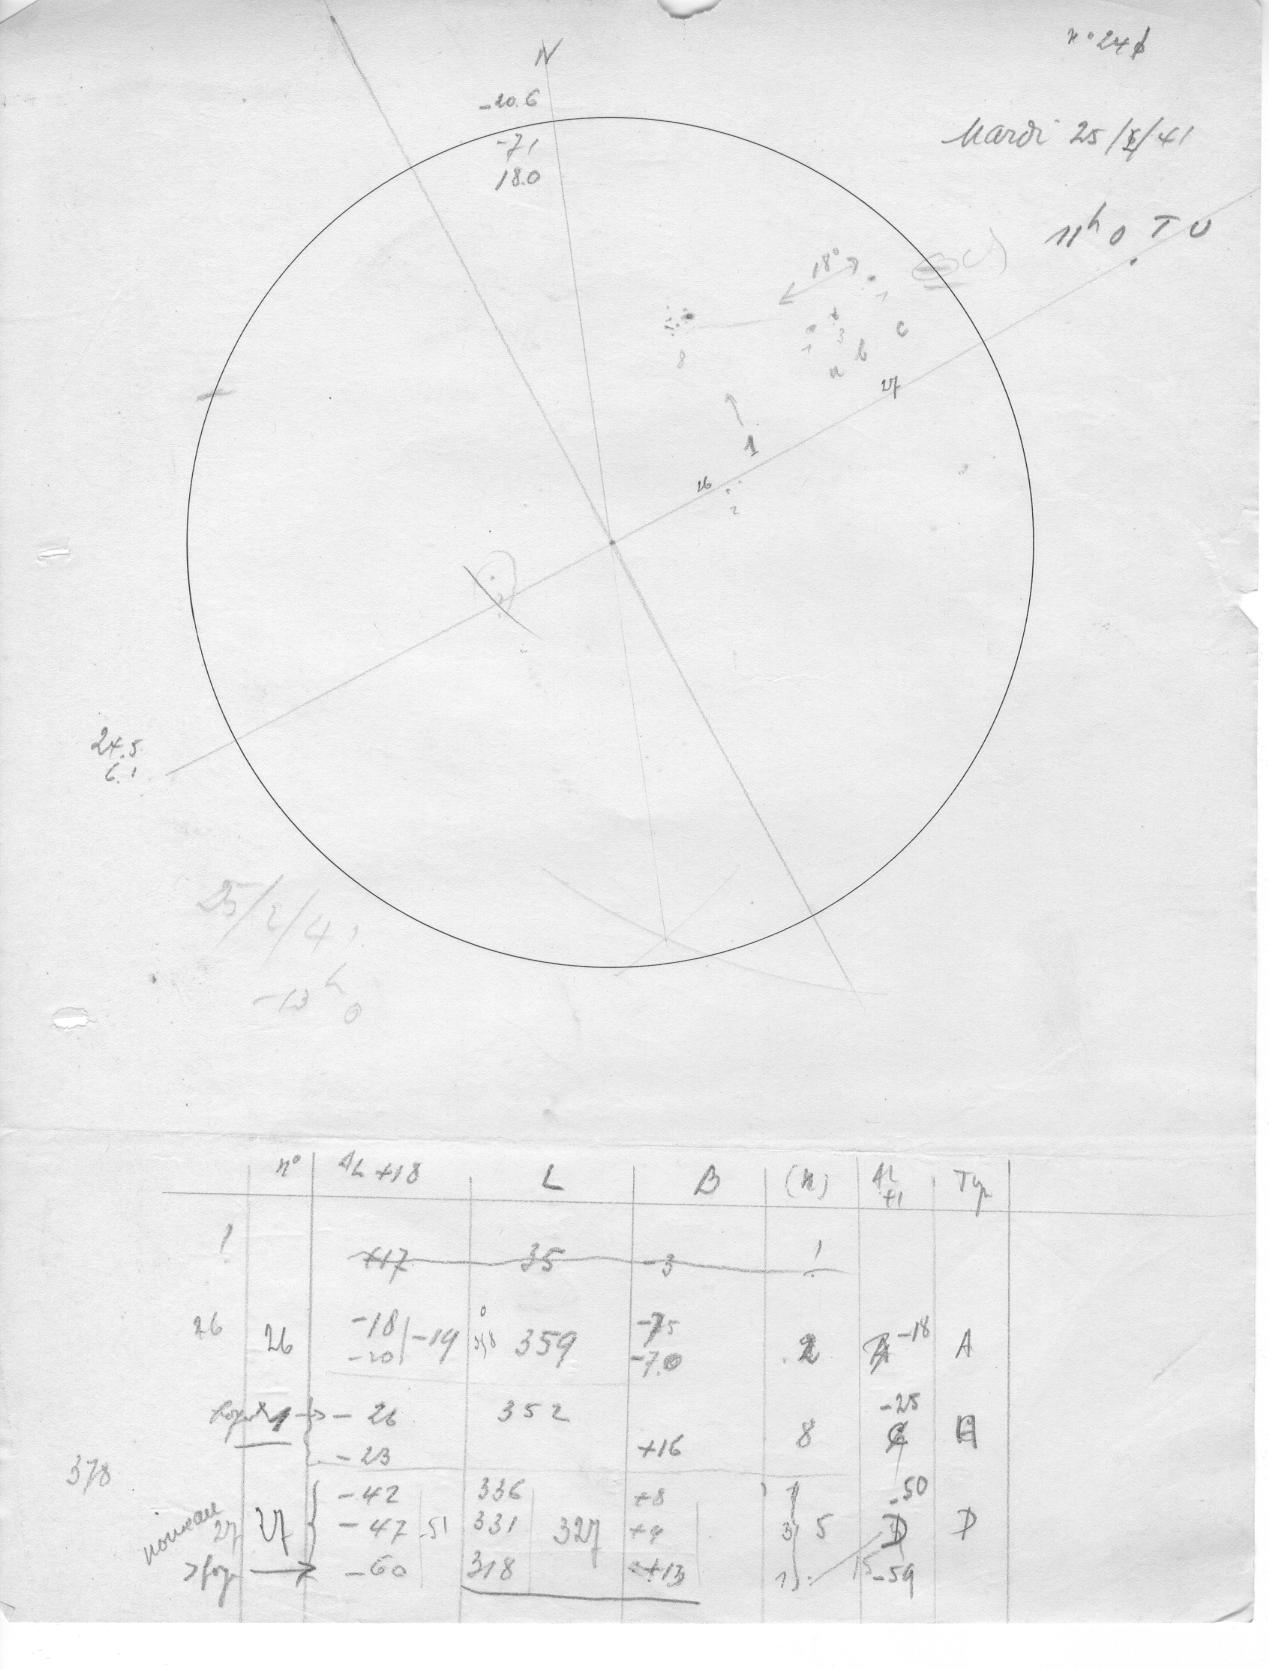 n° 24
N
-20.6
-7.1
18.0
Mardi 25/2/41
11h 0 T U
18°
1
8
1
3
b
c
a
27
1
26
2
24.5
6.1
25/2/41
-13h 0
n° ΔL +18 L B (n) ΔL +1 Typ
! +17 35 -3 !
26 26 -18 -19 358 359 -75 2 -18 A
-20 -7.0
1 → - 26 352 8 -25
- 23 +16
378
nouveau 27 27 -42 336 +8 1 -50
-47 51 331 327 +9 3 5 D D
→ -60 318 +13 1 -59